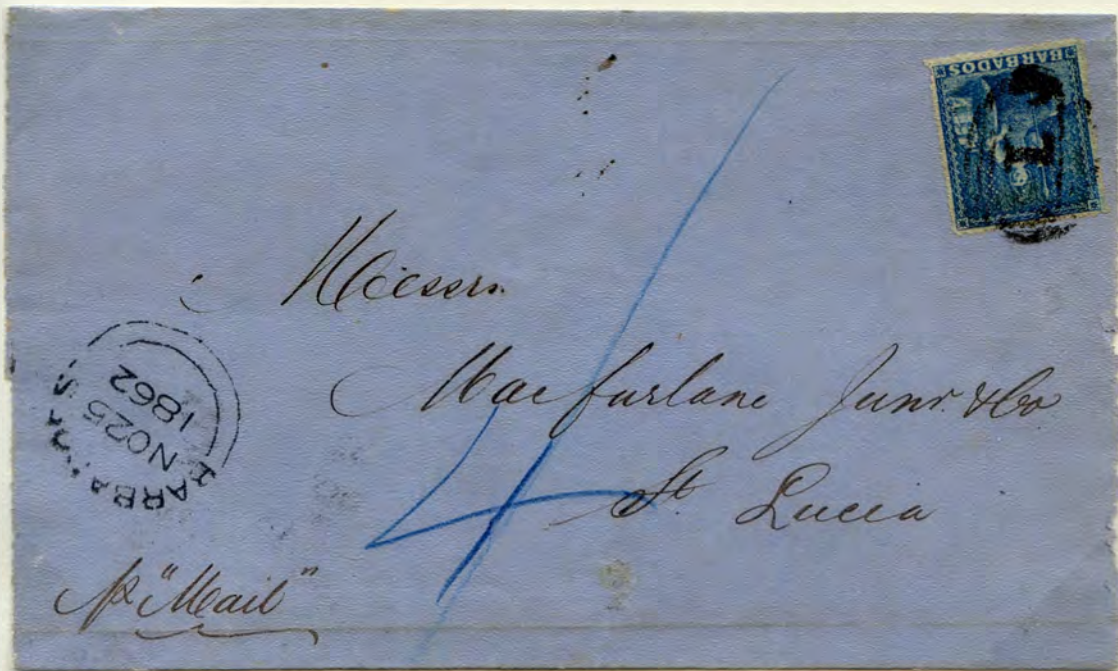 BARBADOS
1
Messrs
Macfarlane Junr. & Co
St Lucia
BARBADOS
NO25
1862
4/
pr "Mail"